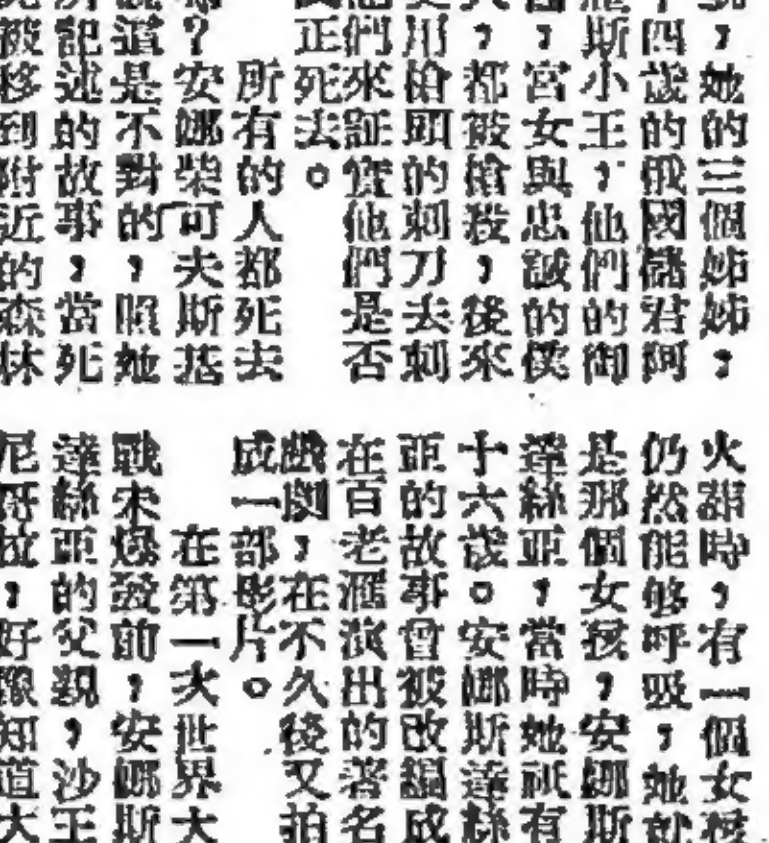 ，她的三個姊姊，
四歲的俄國儲君阿
斯小王，他們的御
，宮女與忠誠的僕
，都被槍殺，後來
用槍頭的刺刀去刺
們來証實他們是否
正死去。
所有的人都死去
？安娜柴可夫斯基
道是不對的，照她
記述的故事，當死
被移到附近的森林
火葬時，有一個女孩
仍然能够呼吸，她就
是那個女孩，安娜斯
達絲亞，當時她祇有
十六歲。安娜斯達絲
亞的故事曾被改編成
在百老滙演出的著名
戲劇，在不久後又拍
成一部影片。
在第一次世界大
戰未爆發前，安娜斯
達絲亞的父親，沙王
尼哥拉，好像知道大